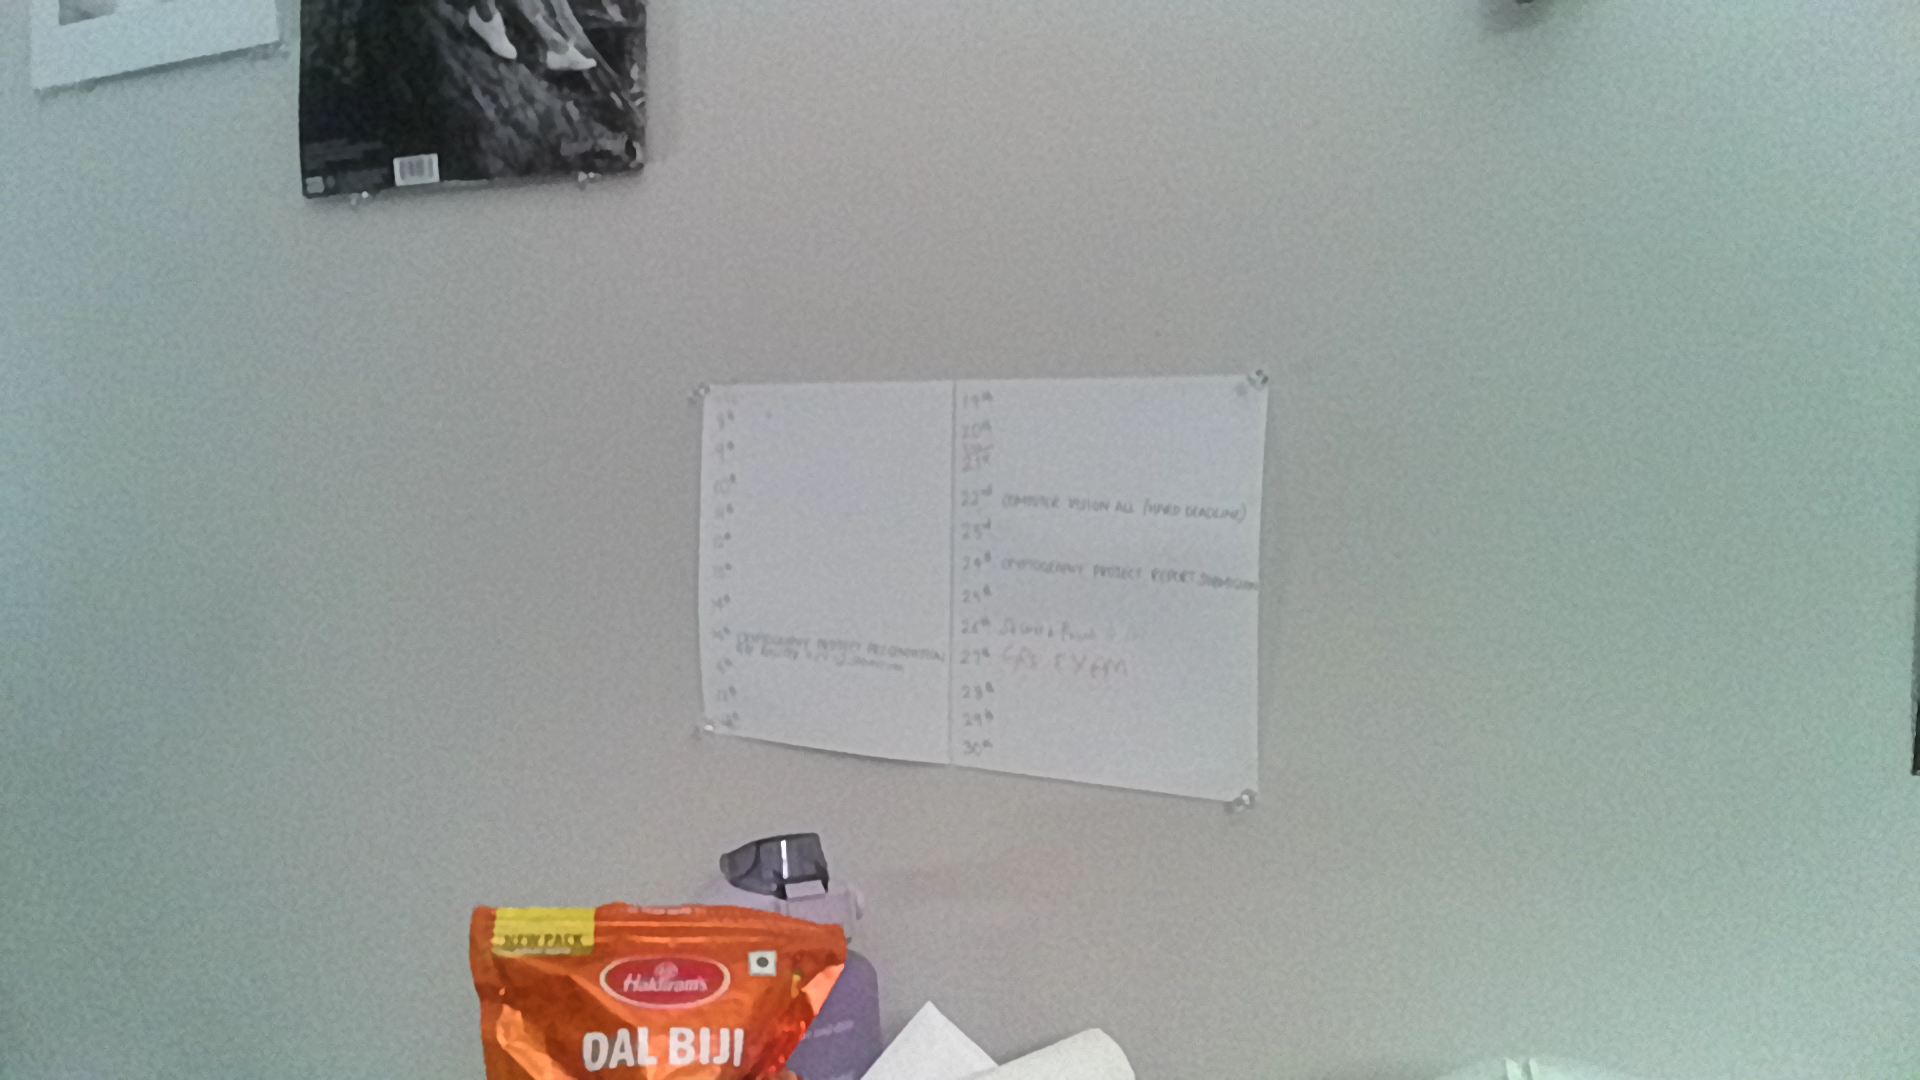 8th
9th
10th
11th
12th
13th
14th
15th CRYPTOGRAPHY PROJECT PRESENTATION
17th
18th
19th
20th
21st
22nd COMPUTER VISION ALL (HARD DEADLINE)
23rd
24th CRYPTOGRAPHY PROJECT REPORT SUBMISSION
25th
26th
27th EXAM
28th
29th
30th
NEW PACK
Haldiram's
DAL BIJI